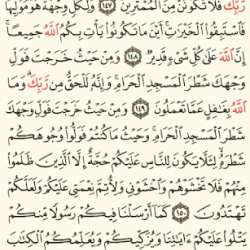 رَّبِّكَ فَلَا تَكُونَنَّ مِنَ ٱلۡمُمۡتَرِينَ ١٤٧ وَلِكُلّٖ وِجۡهَةٌ هُوَ مُوَلِّيهَاۖ
فَٱسۡتَبِقُواْ ٱلۡخَيۡرَٰتِۚ أَيۡنَ مَا تَكُونُواْ يَأۡتِ بِكُمُ ٱللَّهُ جَمِيعًاۚ
إِنَّ ٱللَّهَ عَلَىٰ كُلِّ شَيۡءٖ قَدِيرٞ ١٤٨ وَمِنۡ حَيۡثُ خَرَجۡتَ فَوَلِّ
وَجۡهَكَ شَطۡرَ ٱلۡمَسۡجِدِ ٱلۡحَرَامِۖ وَإِنَّهُۥ لَلۡحَقُّ مِن رَّبِّكَۗ وَمَا
ٱللَّهُ بِغَٰفِلٍ عَمَّا تَعۡمَلُونَ ١٤٩ وَمِنۡ حَيۡثُ خَرَجۡتَ فَوَلِّ وَجۡهَكَ
شَطۡرَ ٱلۡمَسۡجِدِ ٱلۡحَرَامِۚ وَحَيۡثُ مَا كُنتُمۡ فَوَلُّواْ وُجُوهَكُمۡ
شَطۡرَهُۥ لِئَلَّا يَكُونَ لِلنَّاسِ عَلَيۡكُمۡ حُجَّةٌ إِلَّا ٱلَّذِينَ ظَلَمُواْ
مِنۡهُمۡ فَلَا تَخۡشَوۡهُمۡ وَٱخۡشَوۡنِي وَلِأُتِمَّ نِعۡمَتِي عَلَيۡكُمۡ وَلَعَلَّكُمۡ
تَهۡتَدُونَ ١٥٠ كَمَآ أَرۡسَلۡنَا فِيكُمۡ رَسُولٗا مِّنكُمۡ
يَتۡلُواْ عَلَيۡكُمۡ ءَايَٰتِنَا وَيُزَكِّيكُمۡ وَيُعَلِّمُكُمُ ٱلۡكِتَٰبَ